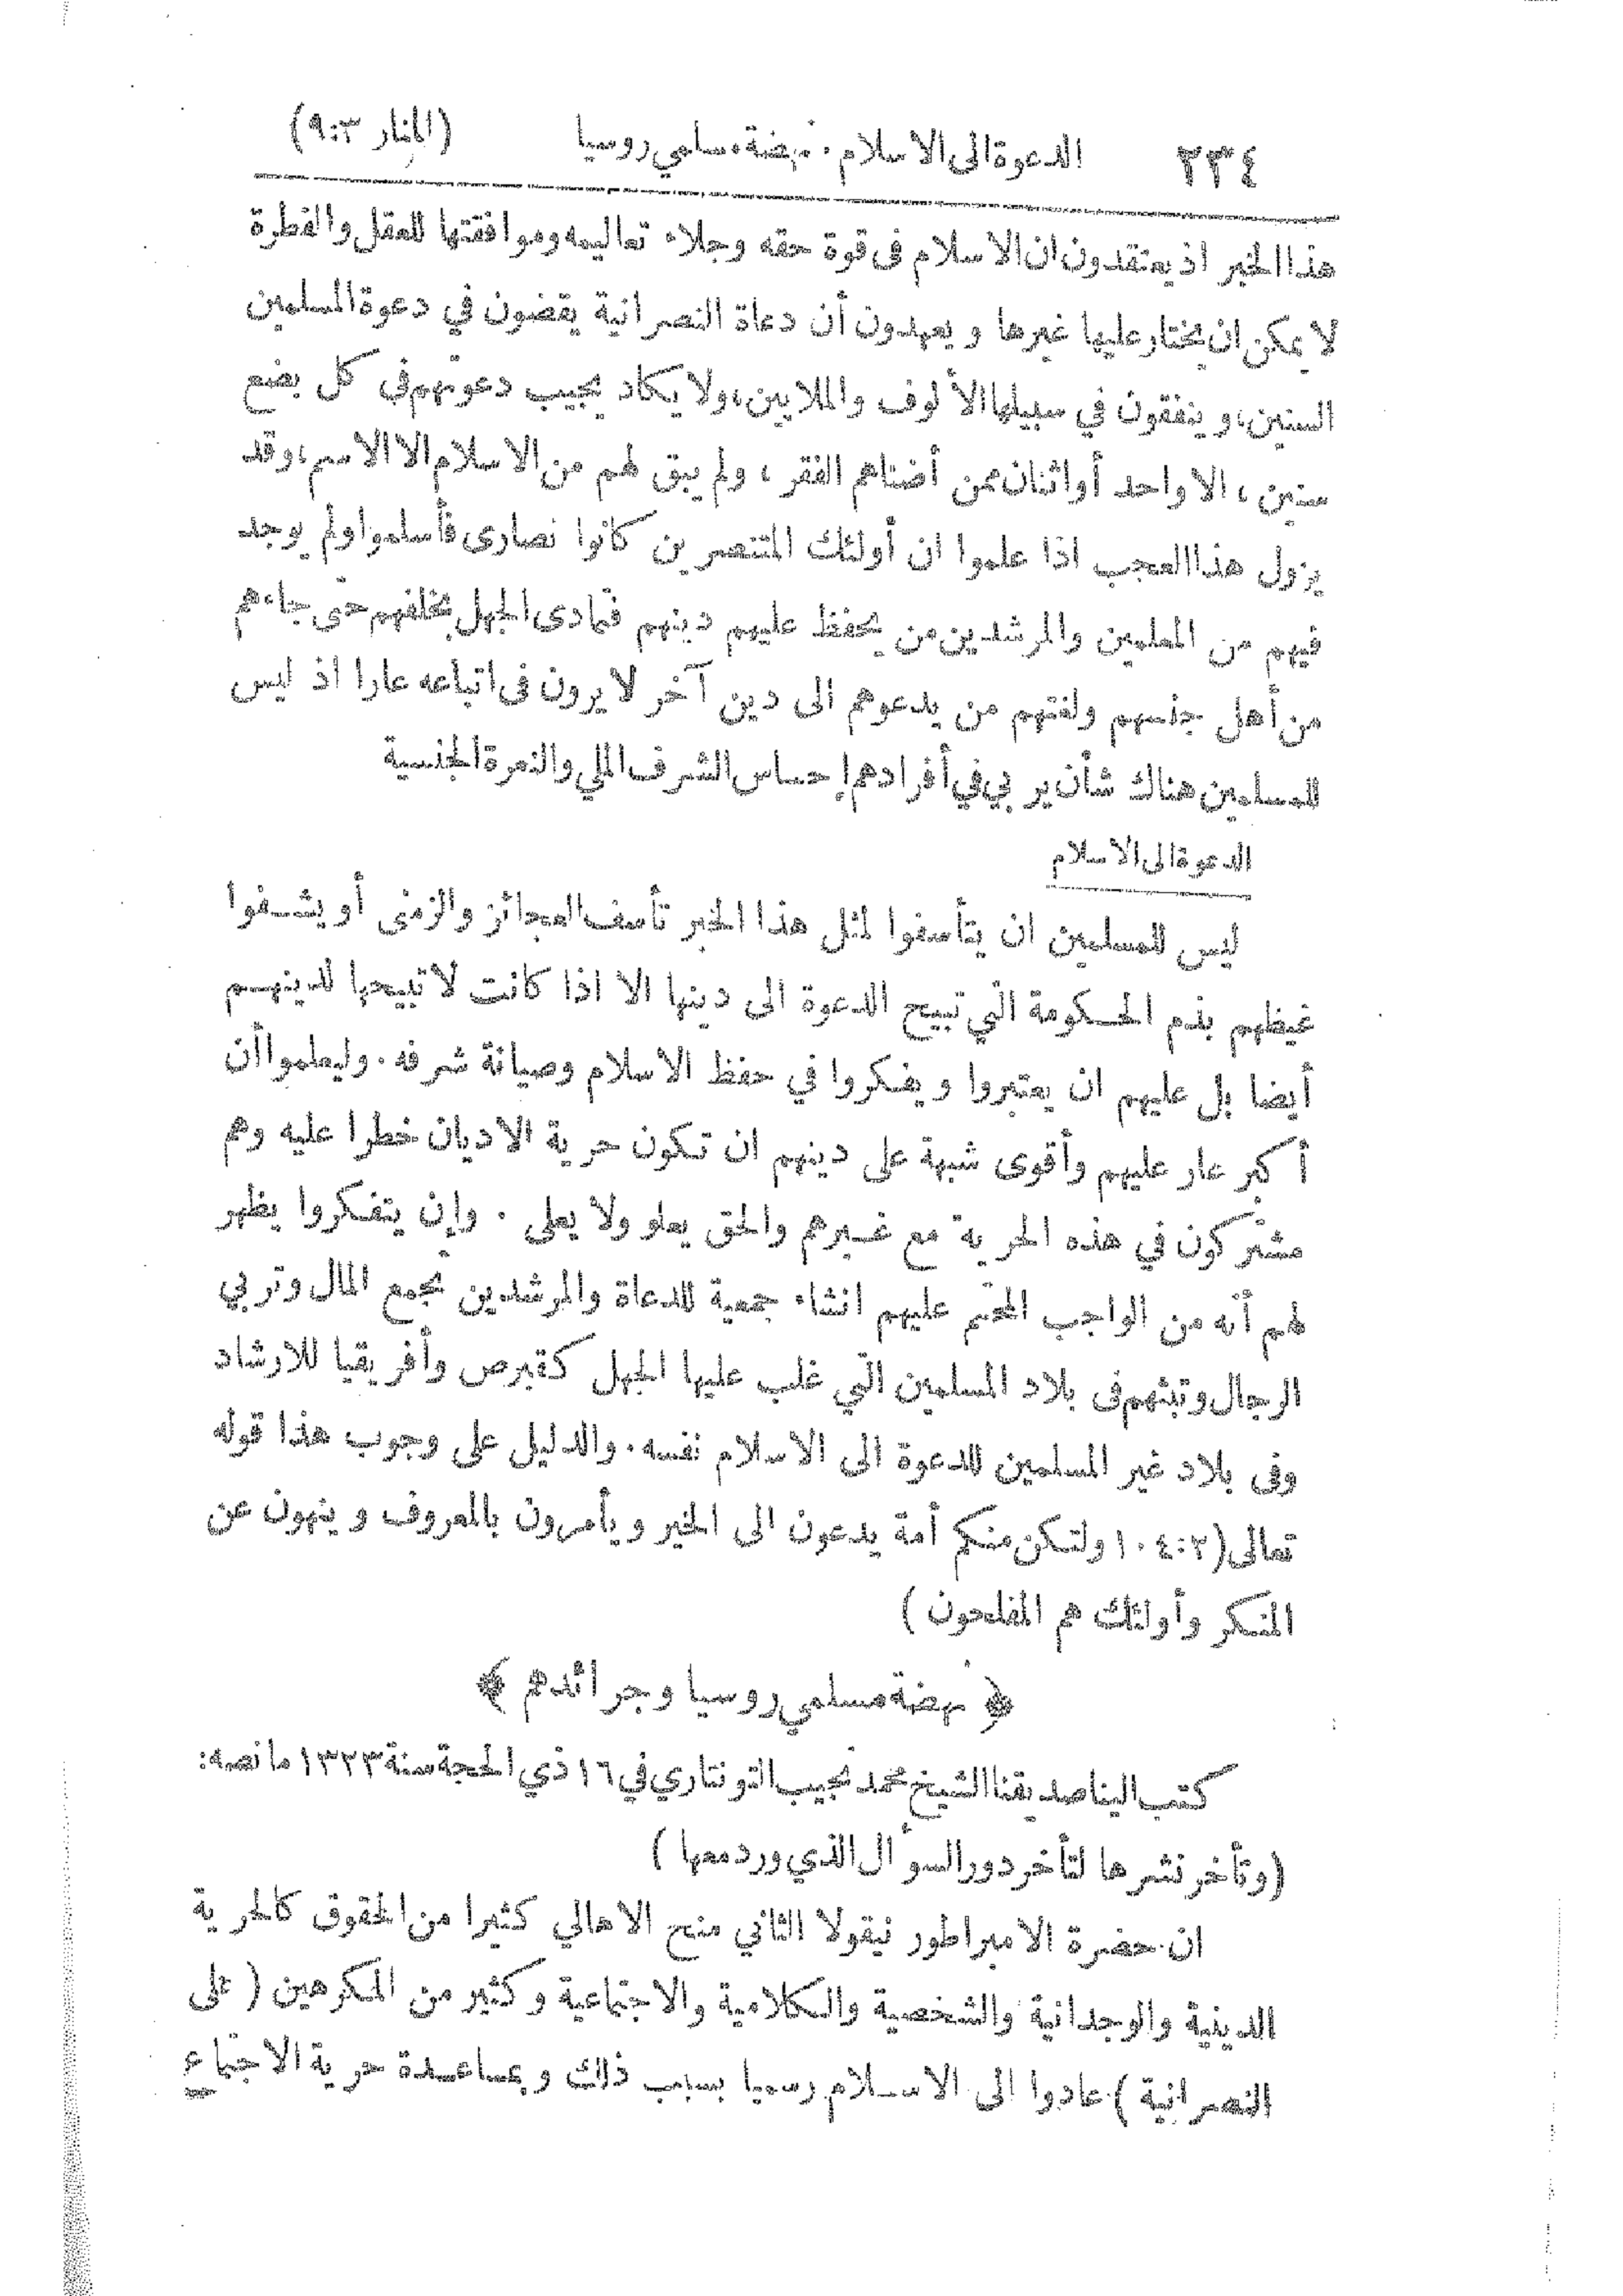 ٢٣٤ الدعوة الى الاسلام . نهضة مسلمي روسيا (المنار ٣:٩)
هذا الخبر اذ يعتقدون ان الاسلام فى قوة حقه وجلاء تعاليمه وموافقتها للعقل والفطرة
لا يمكن ان يختار عليها غيرها ويعهدون أن دعاة النصرانية يقضون في دعوة المسلمين
السنين، وينفقون في سبيلها الألوف والملايين، ولا يكاد يجيب دعوتهم فى كل بضع
سنين ، الا واحد أو اثنان ممن أضناهم الفقر ، ولم يبق لهم من الاسلام الا الاسم، وقد
يزول هذا العجب اذا علموا ان أولئك المتنصرين كانوا نصارى فأسلموا ولم يوجد
فيهم من المعلمين والمرشدين من يحفظ عليهم دينهم فتمادى الجهل بخلفهم حتى جاءهم
من أهل جنسهم ولغتهم من يدعوهم الى دين آخر لا يرون فى اتباعه عارا اذ ليس
للمسلمين هناك شأن يربي في أفرادهم إحساس الشرف الملي والنعرة الجنسية
الدعوة الى الاسلام
ليس للمسلمين ان يتأسفوا لمثل هذا الخبر تأسف العجائز والزمنى أو يشفوا
غيظهم بذم الحكومة التي تبيح الدعوة الى دينها الا اذا كانت لا تبيحها لدينهم
أيضا بل عليهم ان يعتبروا ويفكروا في حفظ الاسلام وصيانة شرفه . وليعلموا أن
أكبر عار عليهم وأقوى شبهة على دينهم ان تكون حرية الاديان خطرا عليه وهم
مشتركون في هذه الحرية مع غيرهم والحق يعلو ولا يعلى . وإن يتفكروا يظهر
لهم أنه من الواجب المحتم عليهم انشاء جمعية للدعاة والمرشدين تجمع المال وتربي
الرجال وتبثهم فى بلاد المسلمين التي غلب عليها الجهل كقبرص وأفريقيا للارشاد
وفى بلاد غير المسلمين للدعوة الى الاسلام نفسه . والدليل على وجوب هذا قوله
تعالى (١٠٤:٣ ولتكن منكم أمة يدعون الى الخير ويأمرون بالمعروف وينهون عن
المنكر وأولئك هم المفلحون )
﴿ نهضة مسلمي روسيا وجرائدهم ﴾
كتب الينا صديقنا الشيخ محمد نجيب التونتاري في ١٦ ذي الحجة سنة ١٣٢٣ ما نصه:
(وتأخر نشرها لتأخر دور السوأل الذي ورد معها )
ان حضرة الامبراطور نيقولا الثاني منح الاهالي كثيرا من الحقوق كالحرية
الدينية والوجدانية والشخصية والكلامية والاجتماعية وكثير من المكرهين ( على
النصرانية ) عادوا الى الاسلام رسميا بسبب ذلك وبمساعدة حرية الاجتماع